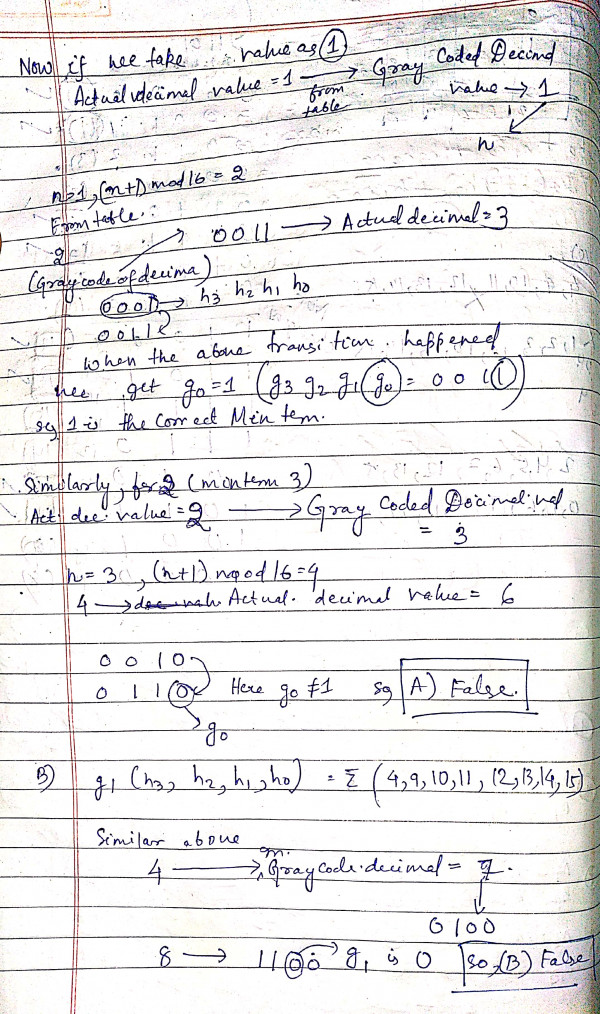 Now if wee take value as 1
Actual decimal value = 1 → from table Gray Coded Decimal
value → 1
n
n=1, (n+1) mod 16 = 2
From table,
2 0011 → Actual decimal = 3
(Gray code of decimal)
0001 → h3 h2 h1 h0
0011
when the above transition happened
wee get g0=1 (g3 g2 g1 g0 = 0 0 1 1)
so 1 is the correct Min term.
Similarly, for 2 (minterm 3)
Act. dec. value = 2 → Gray Coded Decimal val
= 3
n = 3, (n+1) mod 16 = 4
4 → Actual. decimal value = 6
0 0 1 0
0 1 1 0 Here g0 ≠ 1 so A) False.
g0
B) g1 (h3, h2, h1, h0) = Σ (4,9,10,11,12,13,14,15)
Similar above
4 → Gray code decimal = 7.
0100
8 → 1100 g1 is 0 so, (B) False